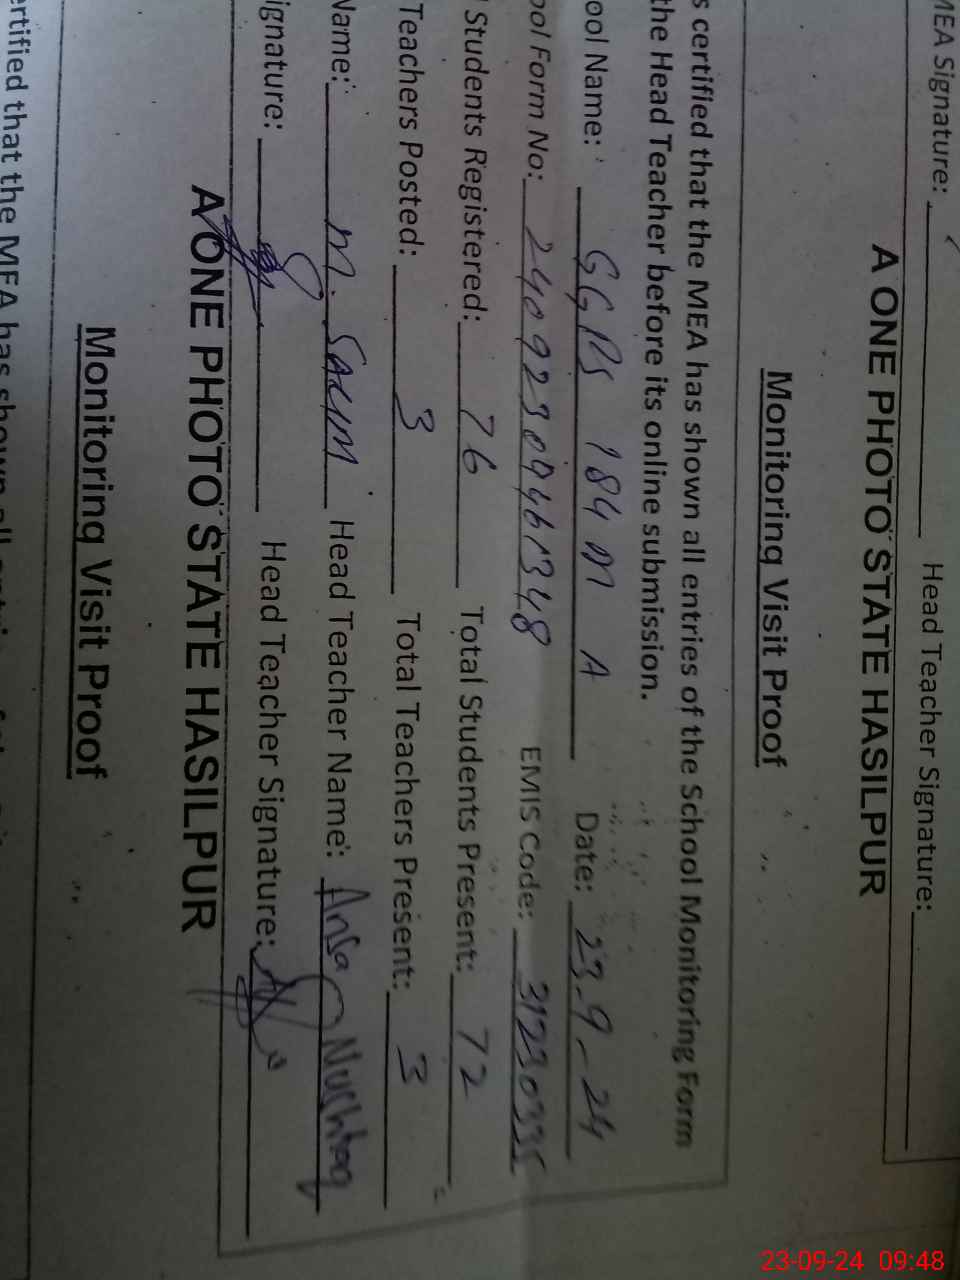 MEA Signature: Head Teacher Signature:
A ONE PHOTO STATE HASILPUR
Monitoring Visit Proof
s certified that the MEA has shown all entries of the School Monitoring Form
the Head Teacher before its online submission.
ool Name: GGPS 184 M A Date: 23-9-24
ool Form No: EMIS Code: 31230335
Students Registered: 76 Total Students Present: 72
Teachers Posted: 3 Total Teachers Present: 3
Name: M. Saeim Head Teacher Name: Ansa Mushtaq
ignature: Head Teacher Signature:
A ONE PHOTO STATE HASILPUR
Monitoring Visit Proof
ertified that the MEA has shown all
23-09-24 09:48